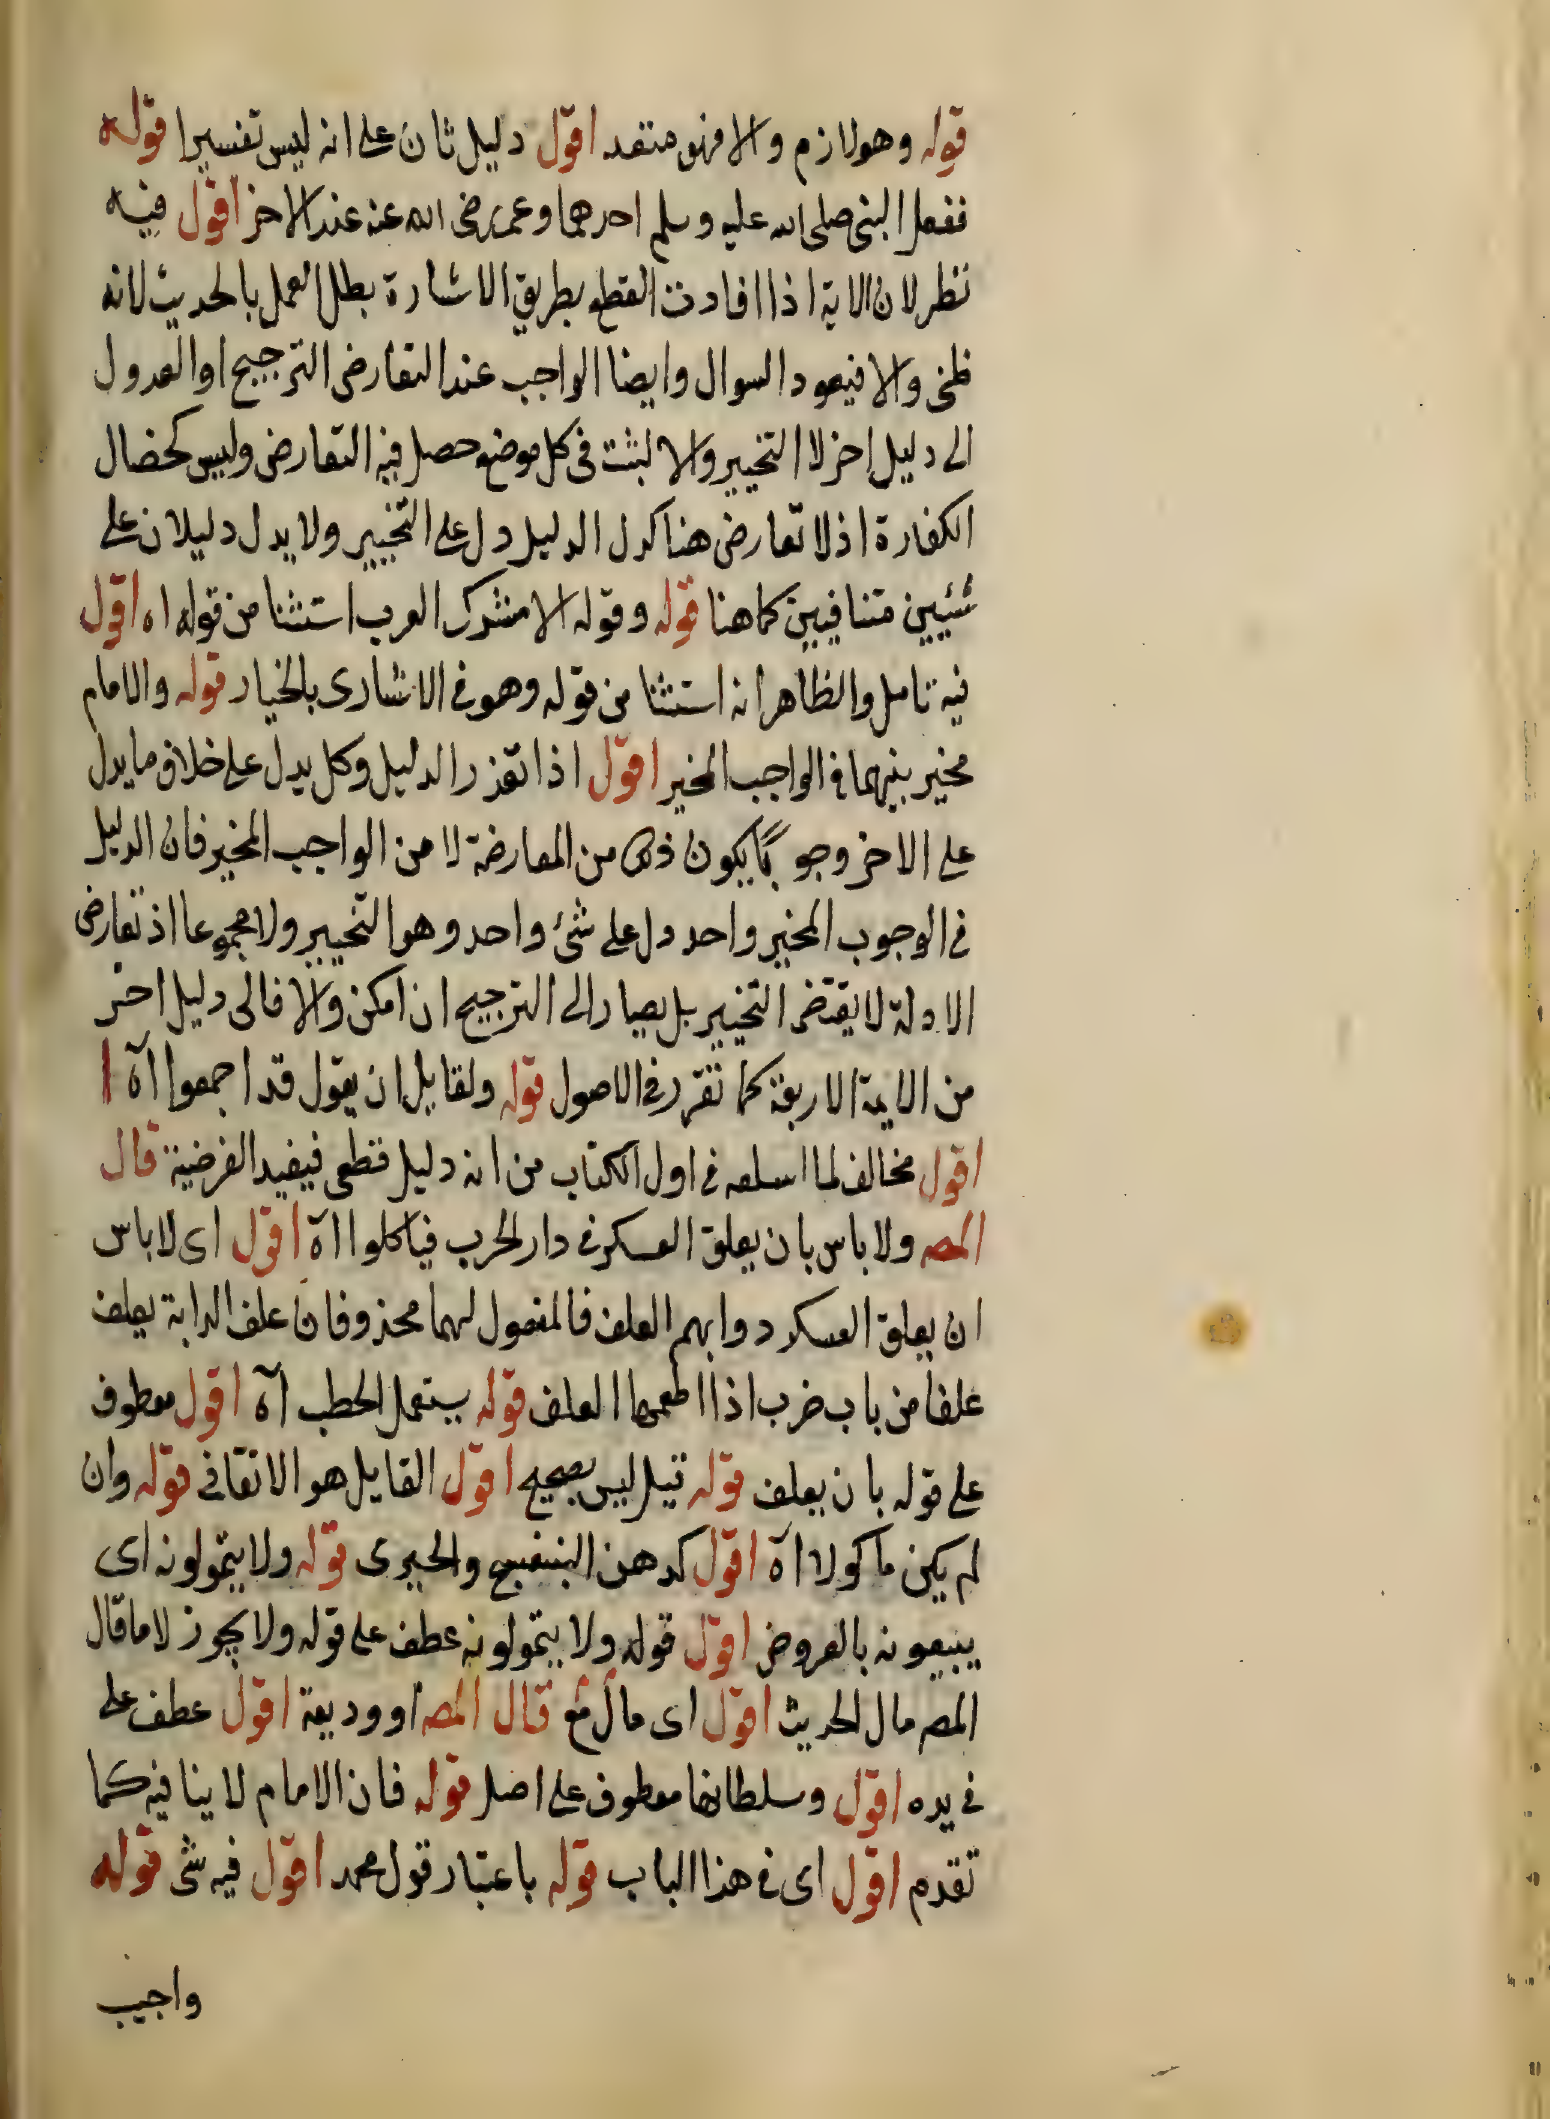 قوله وهو لازم والا فهو متعد اقول دليل ثان على انه ليس تفسيرا قوله
ففعل النبى صلى الله عليه وسلم احدهما وعمر رضى الله عنه عند الاخر اقول فيه
نظر لان الاية اذا افادت القطع بطريق الاشارة بطل العمل بالحديث لانه
ظنى والا فيعود السوال وايضا الواجب عند التعارض الترجيح او العدول
الى دليل اخر لا التخيير والا لبثت فى كل موضع حصل فيه التعارض وليس كخصال
الكفارة اذ لا تعارض هنا كدل الدليل دل على التخيير ولا يدل دليلان على
شيئين متنافيين كما هنا قوله وقوله الا مشرك العرب استثنا من قوله اه اقول
فيه تامل والظاهر انه استثنا من قوله وهو فى الاسارى بالخيار قوله والامام
مخير بينهما فى الواجب المخير اقول اذا تعذر الدليل وكل يدل على خلاف ما يدل
على الاخر وجوبًا يكون ذلك من المعارضة لا من الواجب المخير فان الدليل
فى الوجوب المخير واحد دل على شئ واحد وهو التخيير ولا مجموعا اذ تعارض
الادلة لا يقتضى التخيير بل يصار الى الترجيح ان امكن والا فالى دليل اخر
من الايمة الاربعة كما تقرر فى الاصول قوله ولقايل ان يقول قد اجمعوا اه ا
اقول مخالف لما اسلفه فى اول الكتاب من انه دليل قطعى فيفيد الفرضية قال
المصـ ولا باس بان يعلق العسكر فى دار الحرب فياكلوا اه اقول اى لا باس
ان يعلق العسكر دوابهم العلف فالمفعول لهما محذوفان علف الدابة يعلف
علفا من باب ضرب اذا اطعمها العلف قوله يستعمل الحطب اه اقول معطوف
على قوله بان يعلف قوله قيل ليس بصحيح اقول القايل هو الاتقانى قوله وان
لم يكن ماكولا اه اقول كدهن البنفسج والخيرى قوله ولا يتمولونه اى
يبيعونه بالعروض اقول قوله ولا يتمولونه عطف على قوله ولا يجوز لا ما قال
المصـ مال الحديث اقول اى مال قال المصـ او وديعة اقول عطف على
فى يده اقول وسلطانها معطوف على اصل قوله فان الامام لا ينافيه كما
تقدم اقول اى فى هذا الباب قوله باعتبار قول محمد اقول فيه شى قوله
واجيب